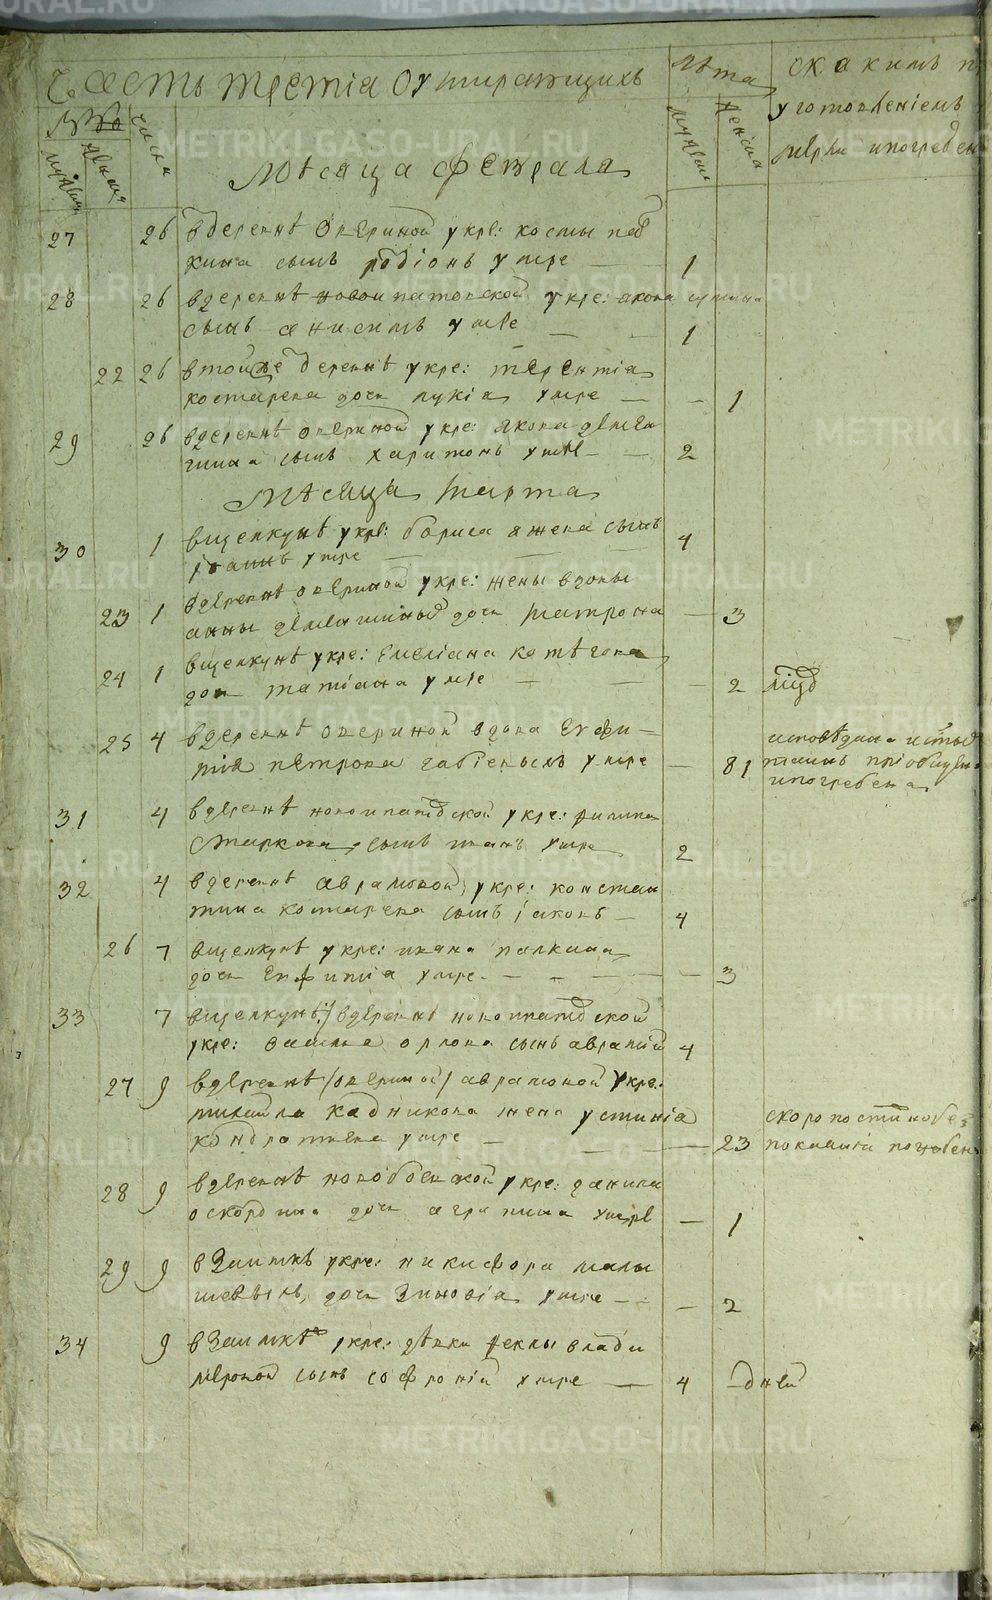 Часть третіа О умирающихъ
лѣта
скакимъ п
уготовленіемъ
мужеск женска
числа
мужеска женска
мерли ипогребен
Мѣсяца февраля
27 26 вдеревнѣ Оверіной укре: косты
кина сынъ родіонъ умре — 1
28 26 вдеревнѣ новоипатовской укре: якова
сынъ анисимъ умре — — 1
22 26 втойже деревнѣ укре: терентіа
костарева дочь лукіа умре — — 1
29 26 вдеревнѣ оверіной укре: якова
сынъ харитонъ умре — — 2
Мѣсяца марта
30 1 вщелкунѣ укре: бориса сынъ
іоаннъ умре — — — 4
23 1 вдеревнѣ оверіной укре: жены вдовы
анны дочь матрона — 3
24 1 вщелкунѣ укре: емеліана котѣгова
дочь татіана умре — — — 2 млад
25 4 вдеревнѣ оверіной вдова Евфи=
міа петрова умре — — 81
исповѣдана истых
таинъ пріобщена
ипогребена
31 4 вдеревнѣ новоипатовской укре: филипа
маркова сынъ иванъ умре 2
32 4 вдеревнѣ аврамовой укре: констан
тина костарева сынъ іаковъ — 4
26 7 вщелкунѣ укре: ивана палкина
дочь Евфиміа умре — — — — 3
33 7 вщелкунѣ/ вдеревнѣ новоипатовской
укре: василіа орлова сынъ аврамій 4
27 9 вдеревнѣ /оверіной/ аврамовой укре:
михайла кадникова жена устиніа
кондратіева умре — — — 23
скоропостижно без
покаянія погребен
28 9 вдеревнѣ новобоевской укре: данила
оскордина дочь агрипина умре — 1
29 9 взаимкѣ укре: никифора малы
шевыхъ, дочь зиновіа умре — — — 2
34 9 взаимкѣ укре: дѣвки феклы влади
мировой сынъ софроній умре — 4 дней